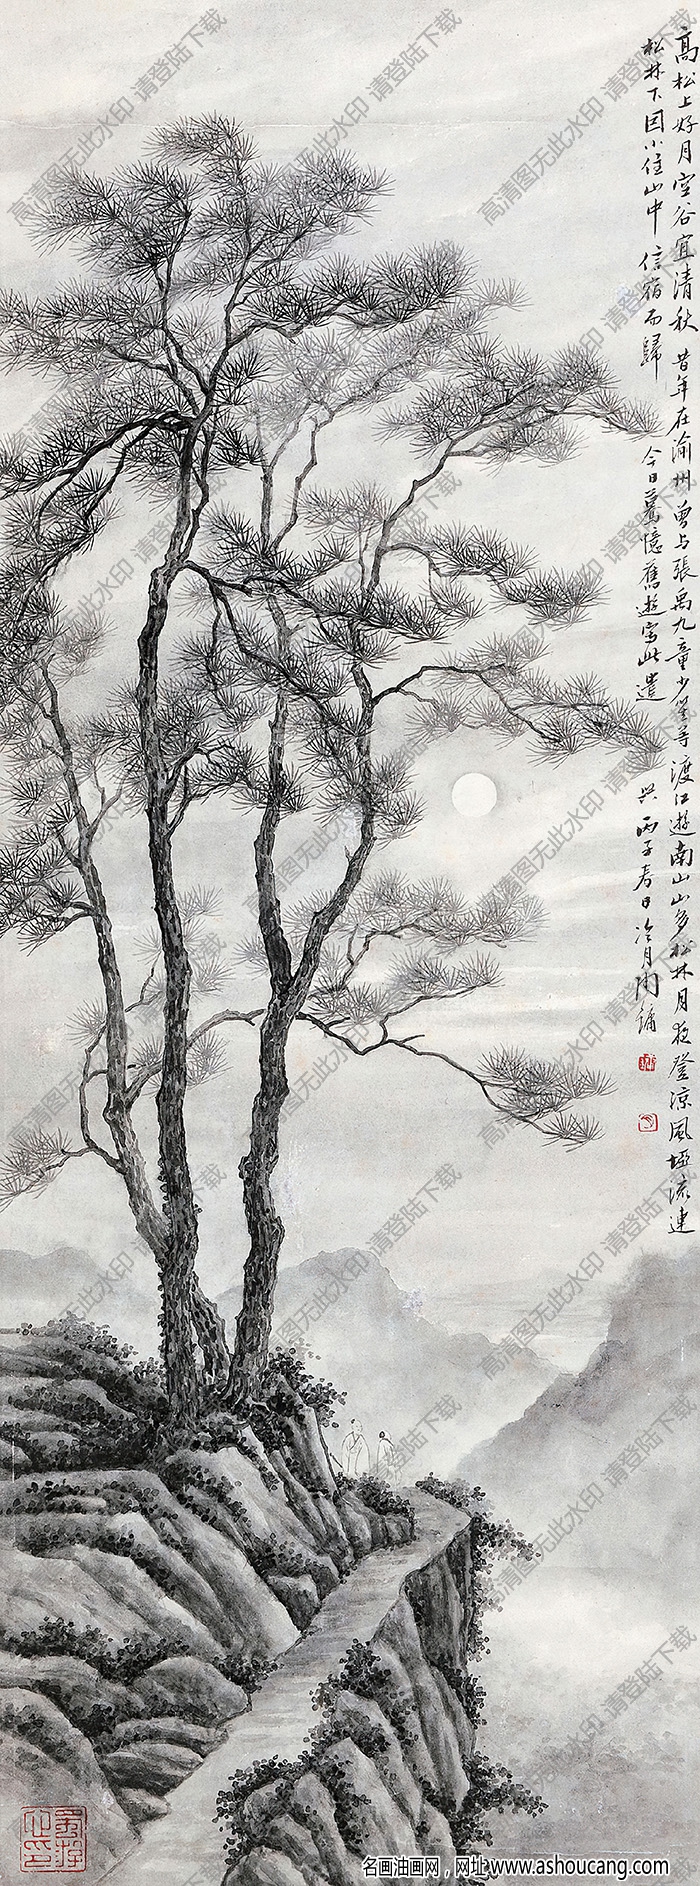 高松上好月空谷宜清秋 昔年在渝州曾与張禹九童少生等渡江遊南山山多松林月夜登涼風埡流連
松林下因小住山中信宿而歸 今日驀憶舊遊寫此遣
興 丙子春日冷月陶鏞
高清图无此水印 请登陆下载
名画油画网，网址www.ashoucang.com